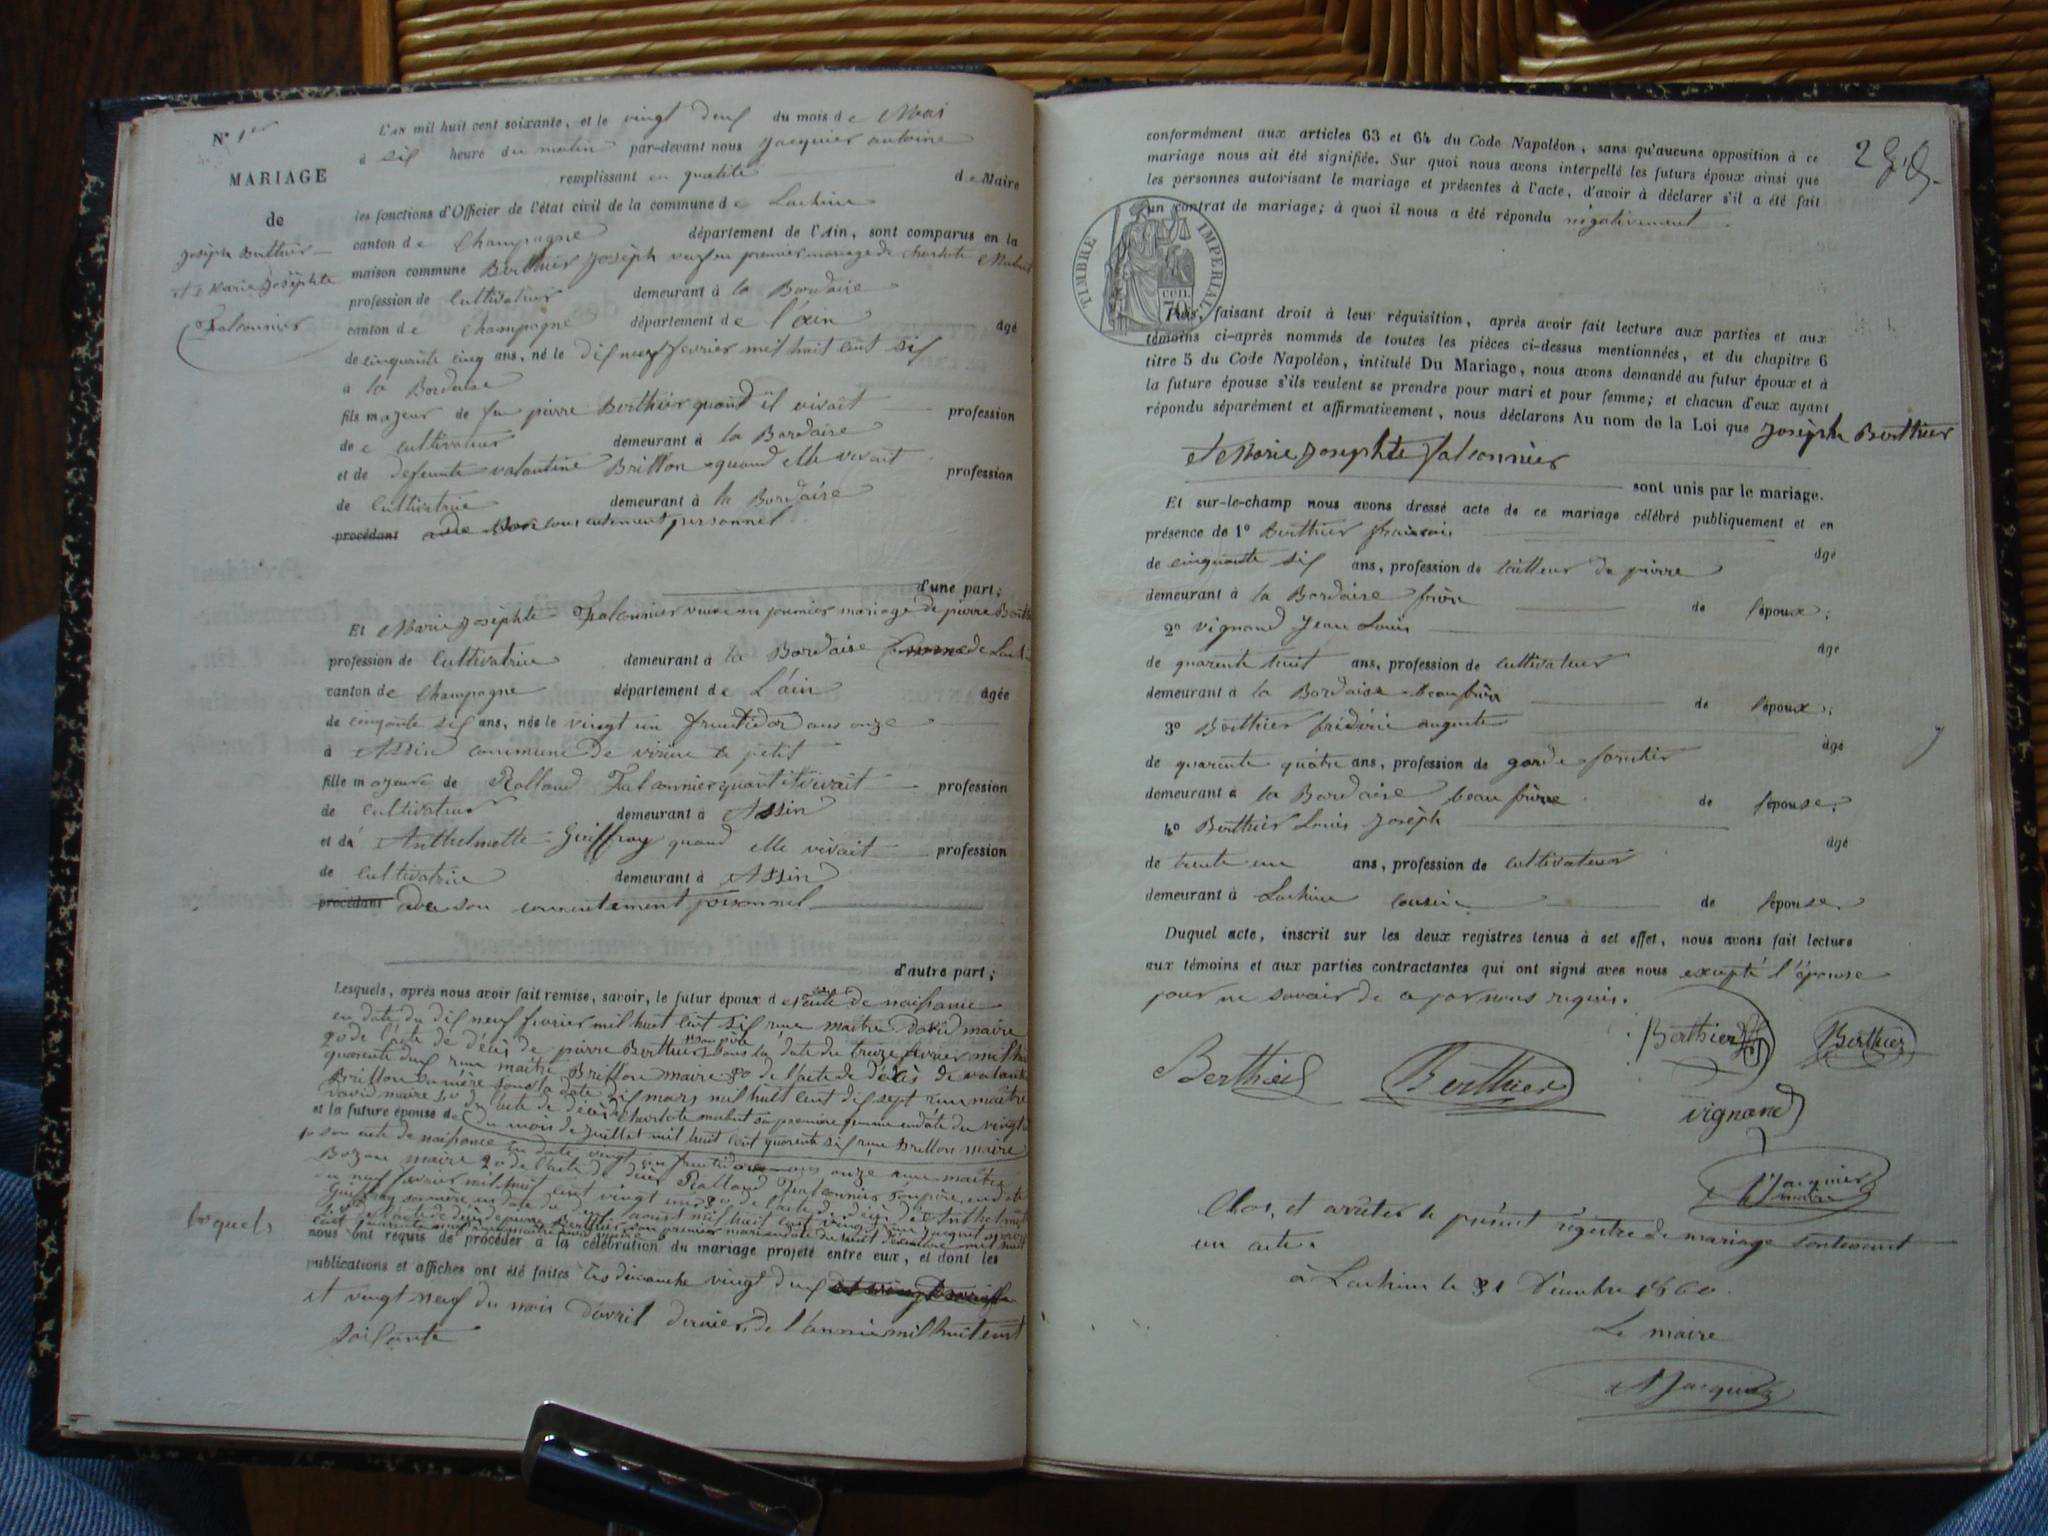 N° 1er
MARIAGE
de
Joseph Berthier
et Marie Josephte
Falconnier
L'AN mil huit cent soixante, et le vingt deux du mois de Mai
à six heure du matin par-devant nous Jacquier antoine
remplissant en qualité de Maire
les fonctions d'Officier de l'état civil de la commune de
canton de Champagne département de l'Ain, sont comparus en la
maison commune Berthier Joseph veuf en premier mariage de charlote
profession de Cultivateur demeurant à la Bordaise
canton de Champagne département de l'ain âgé
de cinquante cinq ans, né le dix neuf fevrier mil huit cent six
à la Bordaise
fils majeur de feu pierre Berthier quand il vivait profession
de cultivateur demeurant à la Bordaise
et de defeunte valantine Brillon quand elle vivait profession
de Cultivatrice demeurant à la Bordaise
procédant de son consentement personnel
d'une part;
Et Marie Josephte Falconnier veuve en premier mariage de pierre
profession de Cultivatrice demeurant à la Bordaise
canton de Champagne département de L'ain âgée
de cinqante six ans, née le vingt un fructidor ans onze
à Assin commune de virieu le petit
fille majeure de Rolland Falconnier quant il vivait profession
de Cultivateur demeurant à Assin
et de Anthelmette Geoffray quand elle vivait profession
de Cultivatrice demeurant à Assin
procédant avec son consentement personnel
d'autre part;
Lesquels, après nous avoir fait remise, savoir, le futur époux de l'acte de naissance
en date du dix neuf fevrier mil huit cent six maire
2o de l'acte de décès de pierre Berthier son père sous la date du treize fevrier mil
quarente deux Brillon maire 3o de l'acte de décès de
Brillon sa mère sous la date dix mars mil huit cent dix sept
maire 4o de l'acte de décès Charlote sa premiere femme en date du vingt
et la future épouse de du mois de Juillet mil huit cent quarente six Brillon maire
1o son acte de naissance en date vingt un fructidor ans onze
maire 2o de l'acte de décès Rolland Falconnier son père en date
neuf fevrier mil huit cent vingt un 3o de l'acte de décès
lesquels
nous ont requis de procéder à la célébration du mariage projeté entre eux, et dont les
publications et affiches ont été faites les dimanche vingt deux
et vingt neuf du mois d'avril dernier, de l'année mil huit cent
soixante
2
conformément aux articles 63 et 64 du Code Napoléon, sans qu'aucune opposition à ce
mariage nous ait été signifiée. Sur quoi nous avons interpellé les futurs époux ainsi que
les personnes autorisant le mariage et présentes à l'acte, d'avoir à déclarer s'il a été fait
un contrat de mariage; à quoi il nous a été répondu négativement
TIMBRE IMPERIAL
cen.
70
Nous, faisant droit à leur réquisition, après avoir fait lecture aux parties et aux
témoins ci-après nommés de toutes les pièces ci-dessus mentionnées, et du chapitre 6
titre 5 du Code Napoléon, intitulé Du Mariage, nous avons demandé au futur époux et à
la future épouse s'ils veulent se prendre pour mari et pour femme; et chacun d'eux ayant
répondu séparément et affirmativement, nous déclarons Au nom de la Loi que Joseph Berthier
et Marie Josephte falconnier
sont unis par le mariage.
Et sur-le-champ nous avons dressé acte de ce mariage célébré publiquement et en
présence de 1° Berthier francois
âgé
de cinquante six ans, profession de tailleur de pierre
demeurant à la Bordaise frère de l'époux;
2° vignand Jean Louis
âgé
de quarente huit ans, profession de cultivateur
demeurant à la Bordaise beau frère de l'époux;
3° Berthier fréderic auguste
âgé
de quarente quatre ans, profession de garde forestier
demeurant à la Bordaise beau frère de l'épouse;
4° Berthier Louis Joseph
âgé
de trente un ans, profession de cultivateur
demeurant à cousin de l'épouse.
Duquel acte, inscrit sur les deux registres tenus à cet effet, nous avons fait lecture
aux témoins et aux parties contractantes qui ont signé avec nous excepté l'épouse
pour ne savoir de ce par nous requis.
Berthier Berthier
Berthier Berthier
vignand
Jacquier
maire
Clos, et arrêter le présent régistre de mariage contenant
un acte.
à le 31 Décembre 1860.
Le maire
A Jacquier